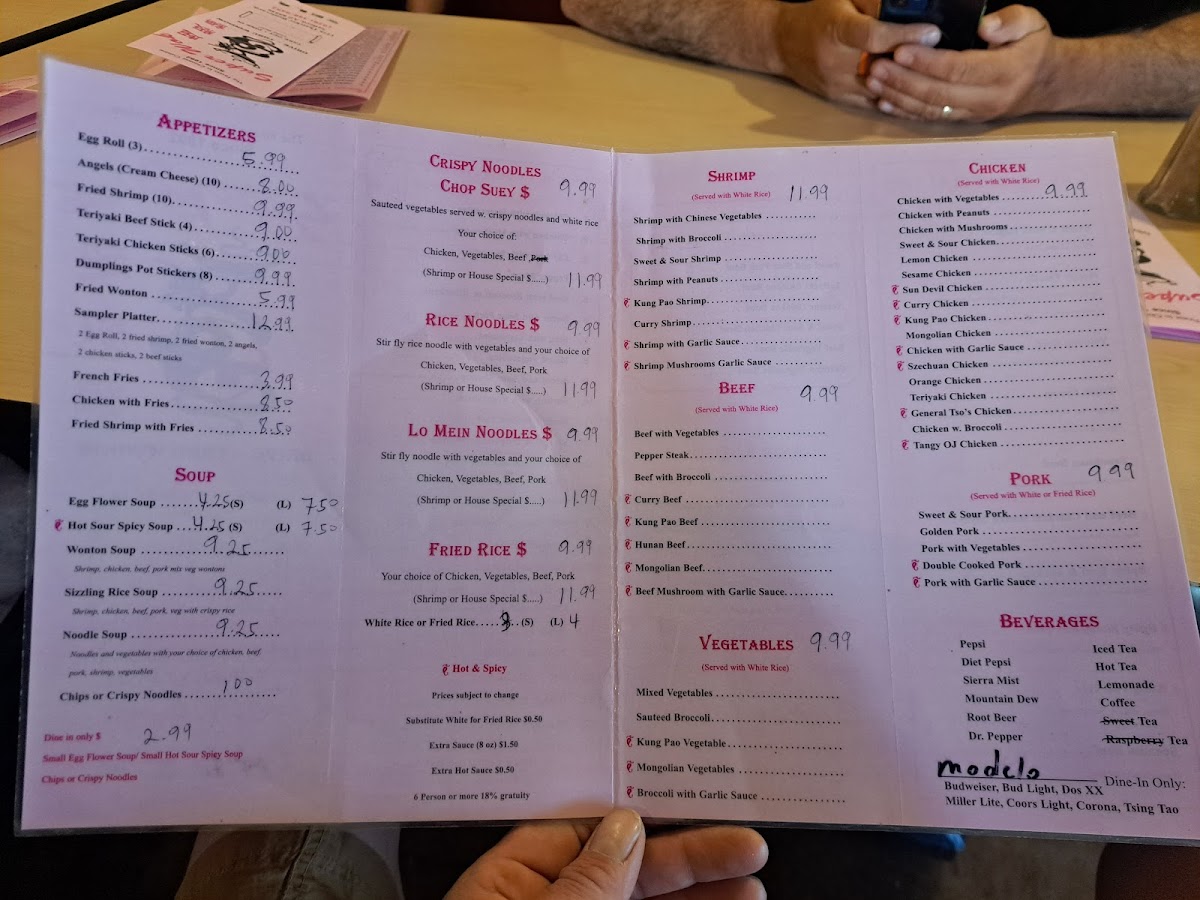 Super
APPETIZERS
Egg Roll (3) 5.99
Angels (Cream Cheese) (10) 8.00
Fried Shrimp (10) 9.99
Teriyaki Beef Stick (4) 9.00
Teriyaki Chicken Sticks (6) 9.00
Dumplings Pot Stickers (8) 9.99
Fried Wonton 5.99
Sampler Platter 12.99
2 Egg Roll, 2 fried shrimp, 2 fried wonton, 2 angels,
2 chicken sticks, 2 beef sticks
French Fries 3.99
Chicken with Fries 8.50
Fried Shrimp with Fries 8.50
SOUP
Egg Flower Soup 4.25 (S) (L) 7.50
Hot Sour Spicy Soup 4.25 (S) (L) 7.50
Wonton Soup 9.25
Shrimp, chicken, beef, pork mix veg wontons
Sizzling Rice Soup 9.25
Shrimp, chicken, beef, pork, veg with crispy rice
Noodle Soup 9.25
Noodles and vegetables with your choice of chicken, beef,
pork, shrimp, vegetables
Chips or Crispy Noodles 1.00
Dine in only $ 2.99
Small Egg Flower Soup/ Small Hot Sour Spicy Soup
Chips or Crispy Noodles
CRISPY NOODLES
CHOP SUEY $ 9.99
Sauteed vegetables served w. crispy noodles and white rice
Your choice of:
Chicken, Vegetables, Beef, Pork
(Shrimp or House Special $.....) 11.99
RICE NOODLES $ 9.99
Stir fly rice noodle with vegetables and your choice of
Chicken, Vegetables, Beef, Pork
(Shrimp or House Special $.....) 11.99
LO MEIN NOODLES $ 9.99
Stir fly noodle with vegetables and your choice of
Chicken, Vegetables, Beef, Pork
(Shrimp or House Special $.....) 11.99
FRIED RICE $ 9.99
Your choice of Chicken, Vegetables, Beef, Pork
(Shrimp or House Special $.....) 11.99
White Rice or Fried Rice 3 (S) (L) 4
Hot & Spicy
Prices subject to change
Substitute White for Fried Rice $0.50
Extra Sauce (8 oz) $1.50
Extra Hot Sauce $0.50
6 Person or more 18% gratuity
SHRIMP 11.99
(Served with White Rice)
Shrimp with Chinese Vegetables
Shrimp with Broccoli
Sweet & Sour Shrimp
Shrimp with Peanuts
Kung Pao Shrimp
Curry Shrimp
Shrimp with Garlic Sauce
Shrimp Mushrooms Garlic Sauce
BEEF 9.99
(Served with White Rice)
Beef with Vegetables
Pepper Steak
Beef with Broccoli
Curry Beef
Kung Pao Beef
Hunan Beef
Mongolian Beef
Beef Mushroom with Garlic Sauce
VEGETABLES 9.99
(Served with White Rice)
Mixed Vegetables
Sauteed Broccoli
Kung Pao Vegetable
Mongolian Vegetables
Broccoli with Garlic Sauce
CHICKEN
(Served with White Rice) 9.99
Chicken with Vegetables
Chicken with Peanuts
Chicken with Mushrooms
Sweet & Sour Chicken
Lemon Chicken
Sesame Chicken
Sun Devil Chicken
Curry Chicken
Kung Pao Chicken
Mongolian Chicken
Chicken with Garlic Sauce
Szechuan Chicken
Orange Chicken
Teriyaki Chicken
General Tso's Chicken
Chicken w. Broccoli
Tangy OJ Chicken
PORK 9.99
(Served with White or Fried Rice)
Sweet & Sour Pork
Golden Pork
Pork with Vegetables
Double Cooked Pork
Pork with Garlic Sauce
BEVERAGES
Pepsi
Diet Pepsi
Sierra Mist
Mountain Dew
Root Beer
Dr. Pepper
Iced Tea
Hot Tea
Lemonade
Coffee
Sweet Tea
Raspberry Tea
modelo Dine-In Only:
Budweiser, Bud Light, Dos XX
Miller Lite, Coors Light, Corona, Tsing Tao